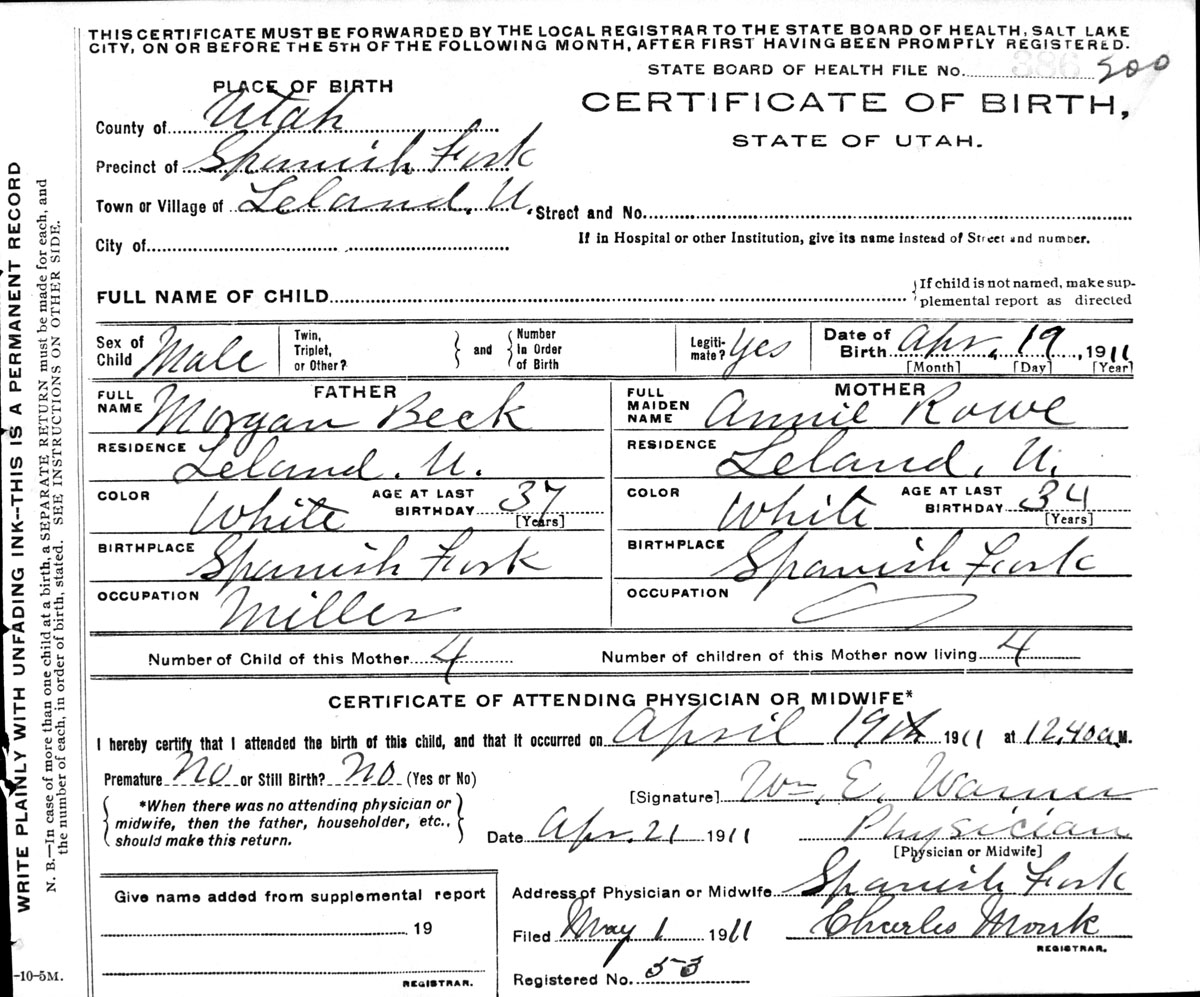 THIS CERTIFICATE MUST BE FORWARDED BY THE LOCAL REGISTRAR TO THE STATE BOARD OF HEALTH, SALT LAKE
CITY, ON OR BEFORE THE 5TH OF THE FOLLOWING MONTH, AFTER FIRST HAVING BEEN PROMPTLY REGISTERED.
STATE BOARD OF HEALTH FILE No. 386 500
PLACE OF BIRTH
CERTIFICATE OF BIRTH,
STATE OF UTAH.
County of Utah
Precinct of Spanish Fork
Town or Village of Leland, U. Street and No.
City of
If in Hospital or other Institution, give its name instead of Street and number.
FULL NAME OF CHILD
If child is not named, make sup-
plemental report as directed
Sex of Child Male
Twin, Triplet, or Other?
and
Number In Order of Birth
Legiti-mate? Yes
Date of Birth Apr. 19, 1911
[Month] [Day] [Year]
FATHER
FULL NAME Morgan Beck
RESIDENCE Leland. U.
COLOR White AGE AT LAST BIRTHDAY 37
[Years]
BIRTHPLACE Spanish Fork
OCCUPATION Miller
MOTHER
FULL MAIDEN NAME Annie Rowe
RESIDENCE Leland, U.
COLOR White AGE AT LAST BIRTHDAY 34
[Years]
BIRTHPLACE Spanish Fork
OCCUPATION
Number of Child of this Mother 4 Number of children of this Mother now living 4
CERTIFICATE OF ATTENDING PHYSICIAN OR MIDWIFE*
I hereby certify that I attended the birth of this child, and that it occurred on April 19th 1911 at 12,40 a.M.
Premature No or Still Birth? No (Yes or No)
*When there was no attending physician or
midwife, then the father, householder, etc.,
should make this return.
[Signature] Wm. E. Warner
Date Apr. 21 1911 Physician
[Physician or Midwife]
Address of Physician or Midwife Spanish Fork
Filed May 1 1911 Charles Monk
REGISTRAR.
Registered No. 53
Give name added from supplemental report
19
REGISTRAR.
-10-5M.
WRITE PLAINLY WITH UNFADING INK--THIS IS A PERMANENT RECORD
N. B.—In case of more than one child at a birth, a SEPARATE RETURN must be made for each, and
the number of each, in order of birth, stated. SEE INSTRUCTIONS ON OTHER SIDE.